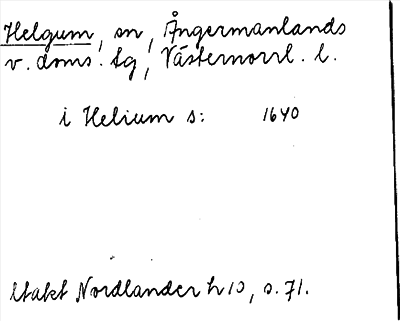 Helgum, sn, Ångermanlands
v. doms. tg, Västernorrl. l.
i Helium s: 1640
Utakt Nordlander h 10, s. 71.